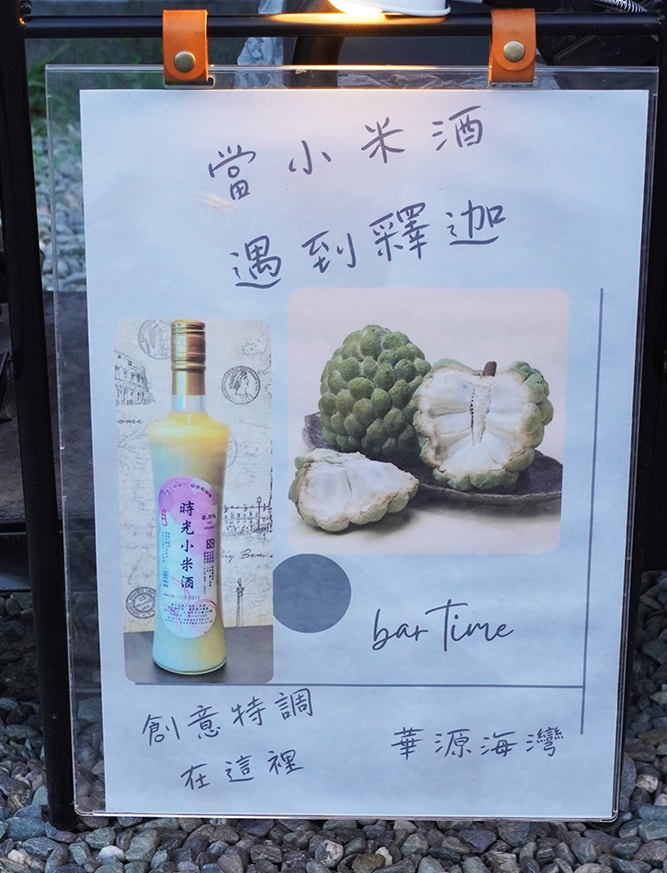 當小米酒
遇到釋迦
時光小米酒
8.5%
bar Time
創意特調
在這裡
華源海灣